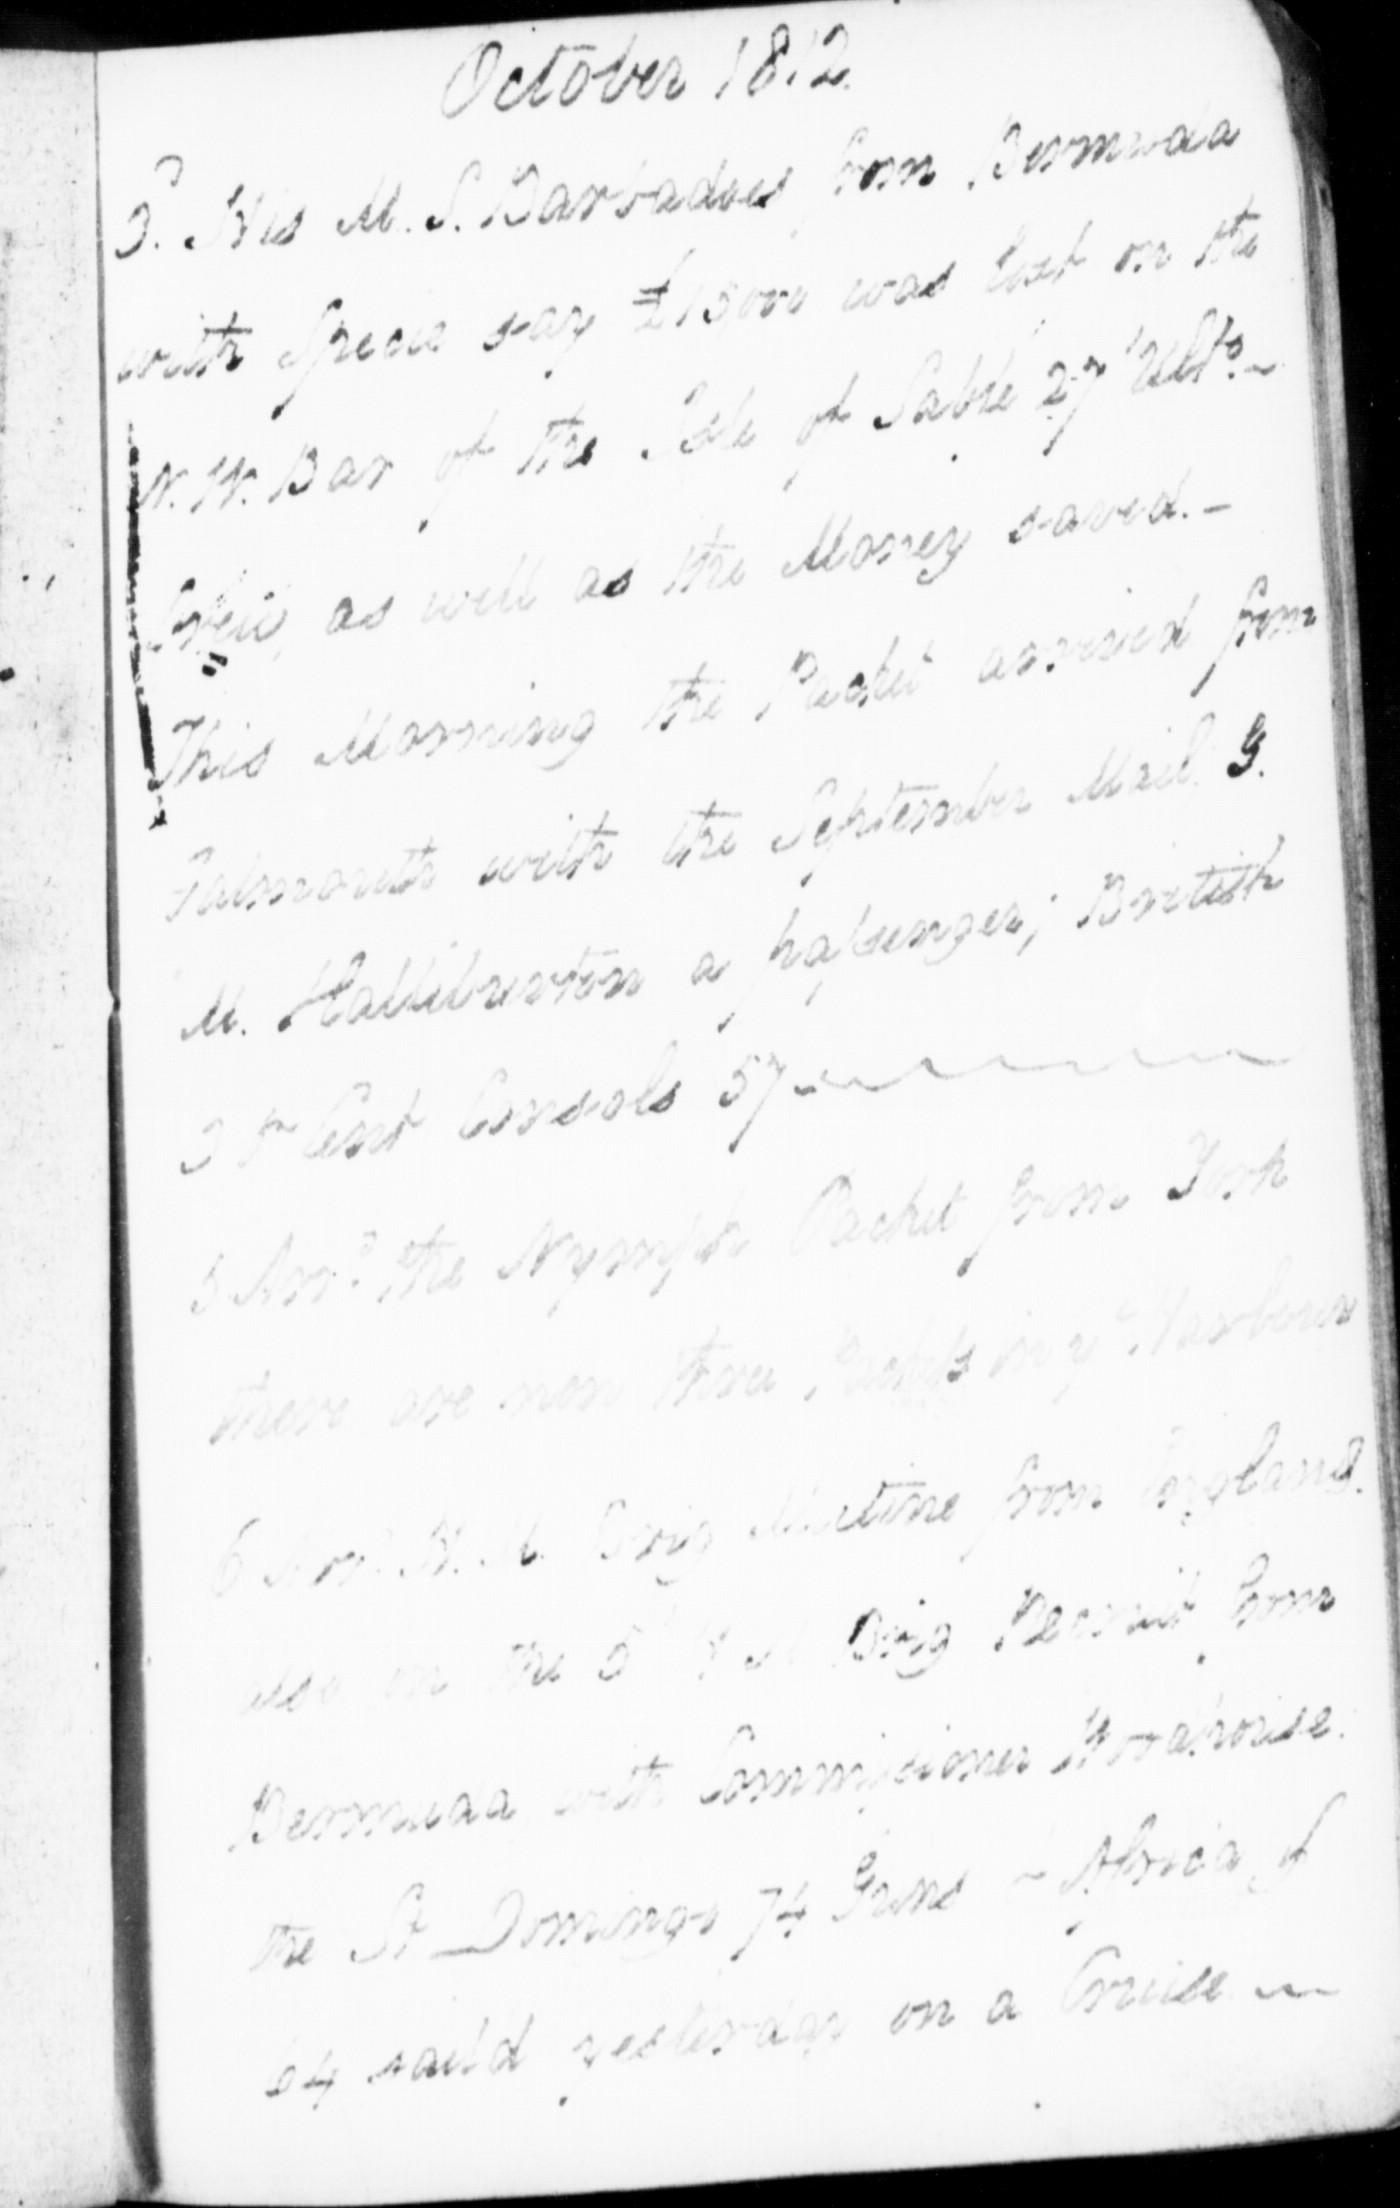 October 1812
3. His M. S. Barbadoes from Bermuda
with Specie say £15000 was lost on the
N. W. Bar of the Isle of Sable 27 Ulto. ~
Crew, as well as the Money saved. –
This Morning the Packet arrived from
Falmouth with the September Mail, G.
M. Halliburton a passenger; British
3 Pr Cent Consols 57
5 Arrd. the Nymph Packet from York
there are now three Packets in ye Harbour
6 Arrd. H. M. Brig Mutine from England.
also on the 5 H M Brig Recruit from
Bermuda with Commissioner Woodhouse.
the St Domingo 74 Guns ~ Africa of
64 saild yesterday on a Cruise ~